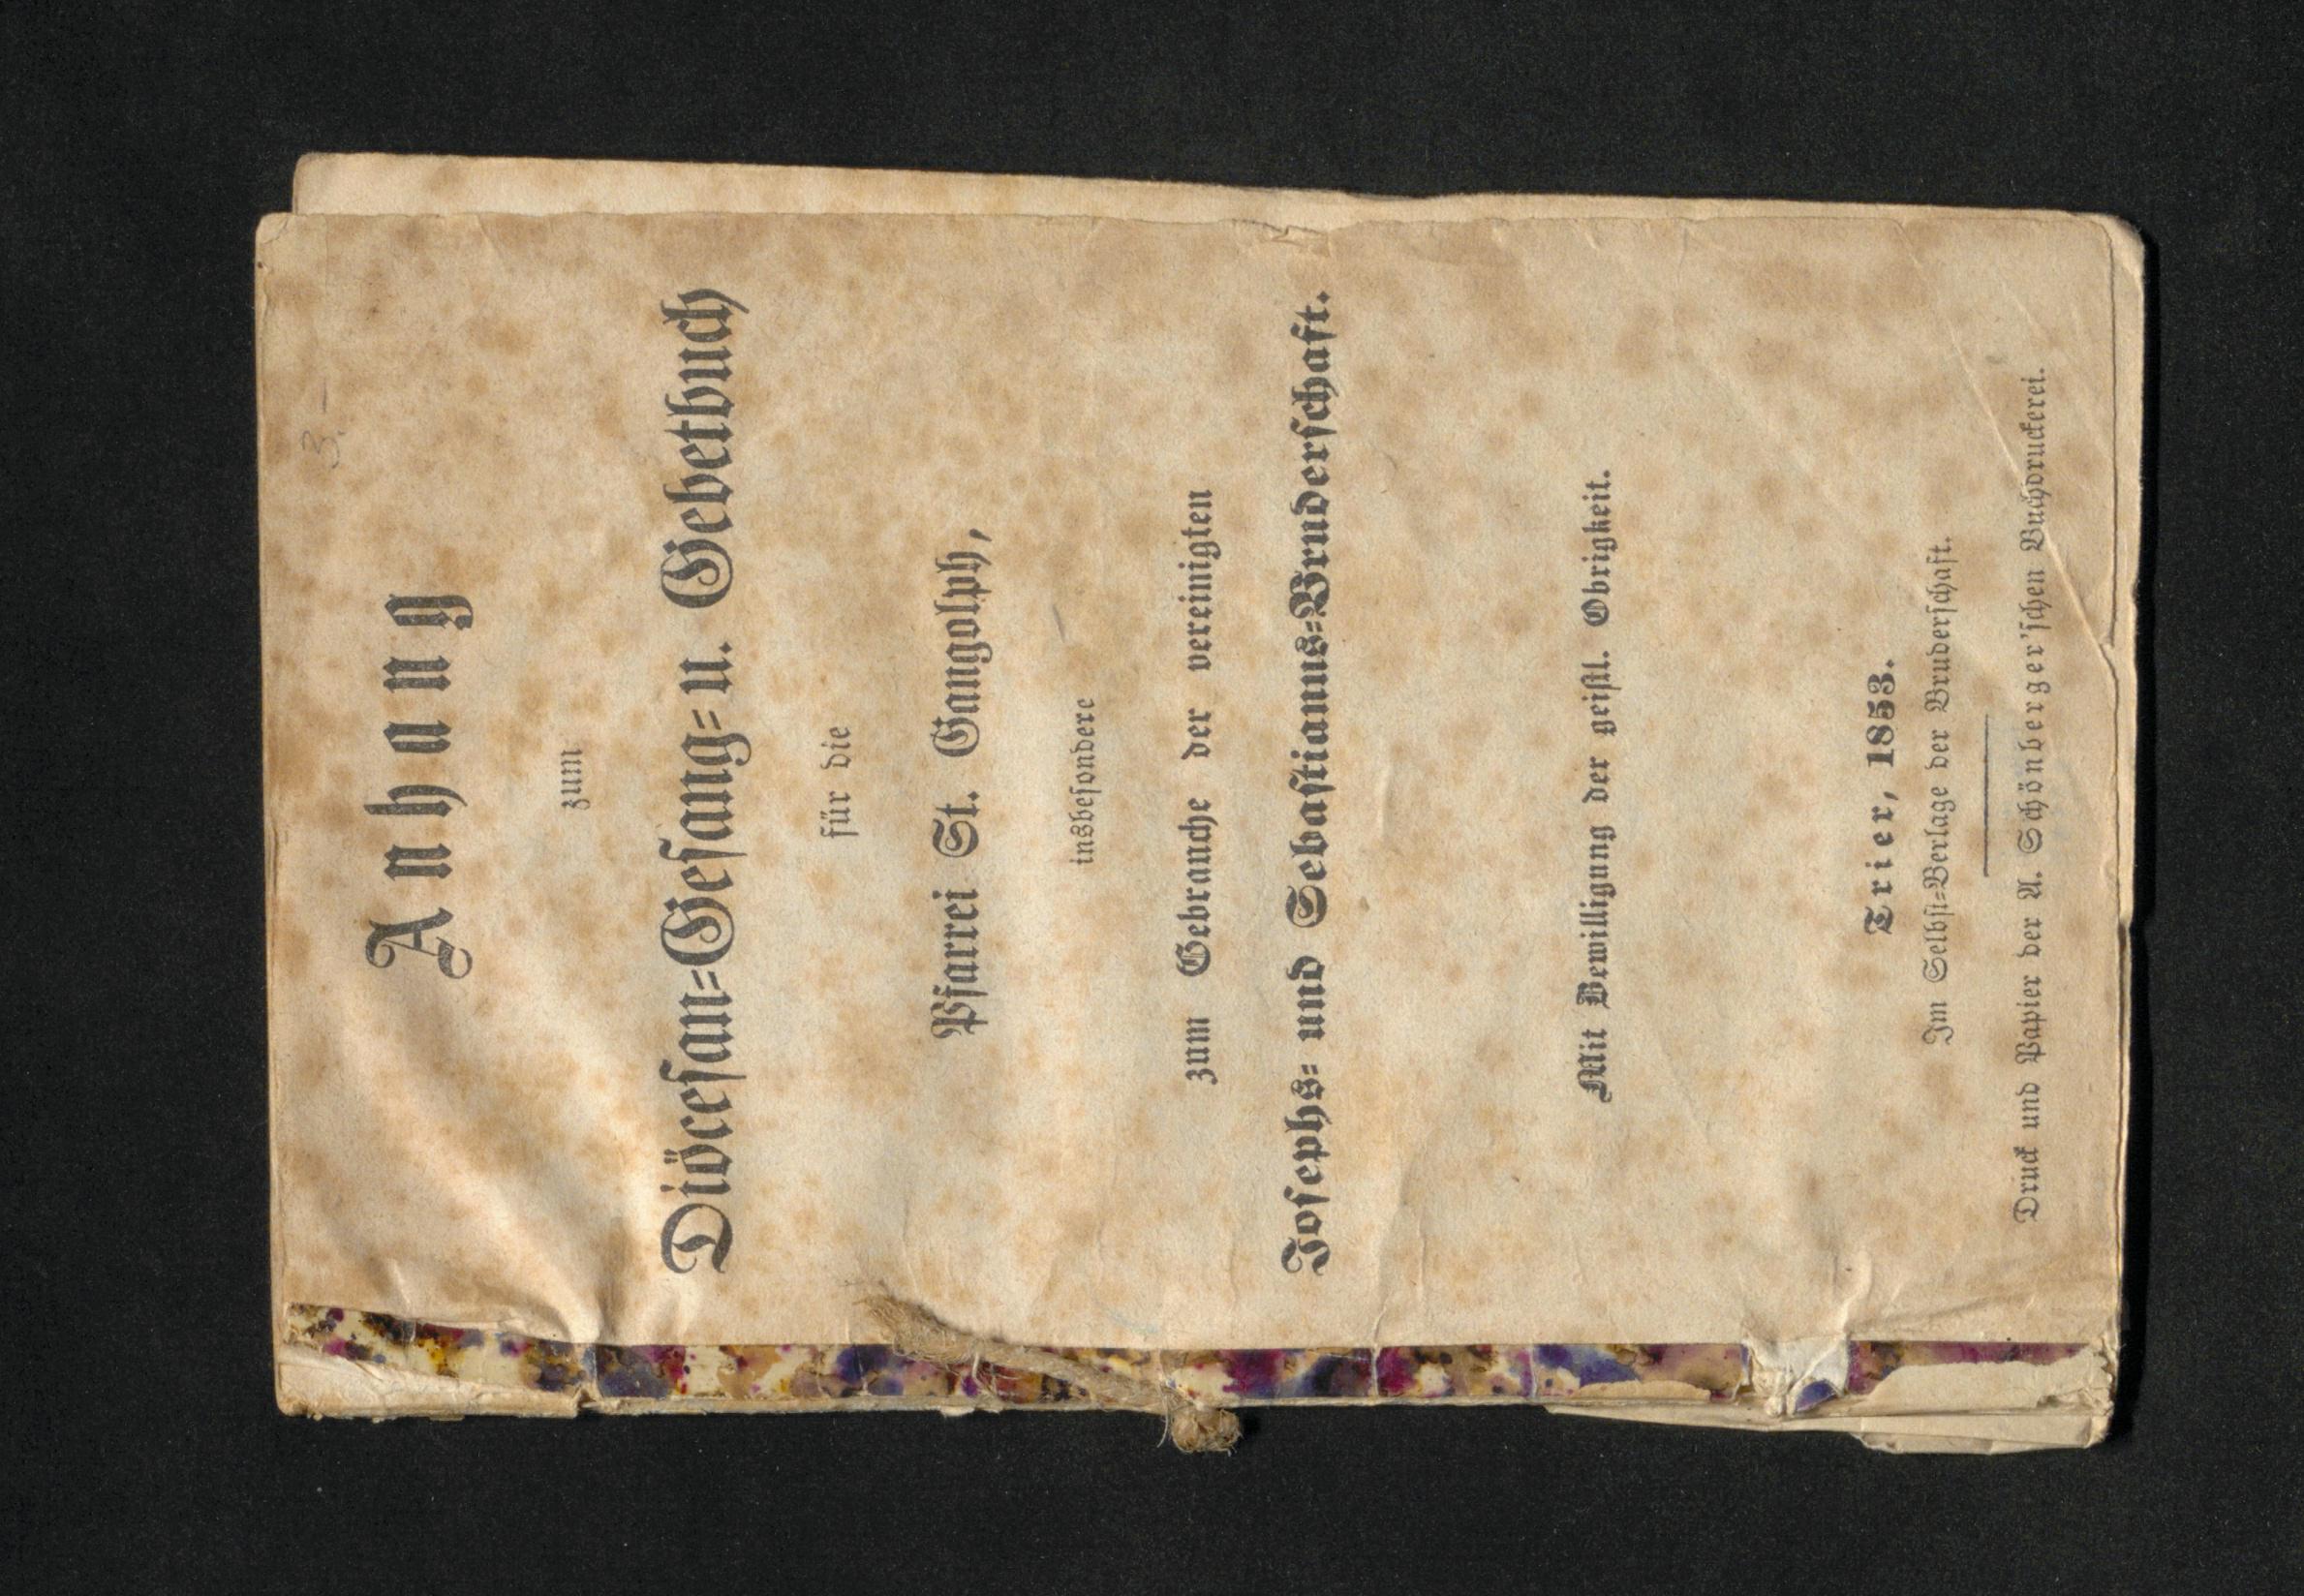 3.–
Anhang
zum
Diöcesan-Gesang- u. Gebetbuch
für die
Pfarrei St. Gangolph,
insbesondere
zum Gebrauche der vereinigten
Josephs- und Sebastianus-Bruderschaft.
Mit Bewilligung der geistl. Obrigkeit.
Trier, 1853.
Im Selbst-Verlage der Bruderschaft.
Druck und Papier der A. Schönberger'schen Buchdruckerei.